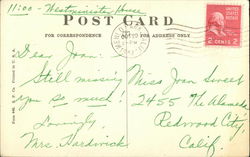 11:00 - Westminster House
POST CARD
FOR CORRESPONDENCE
FOR ADDRESS ONLY
Dear Joan:
Still missing
you so much!
Lovingly
Mrs. Hardwick
Miss Joan Sweet
2455 The Alameda
Redwood City
Calif.
2 CENTS 2